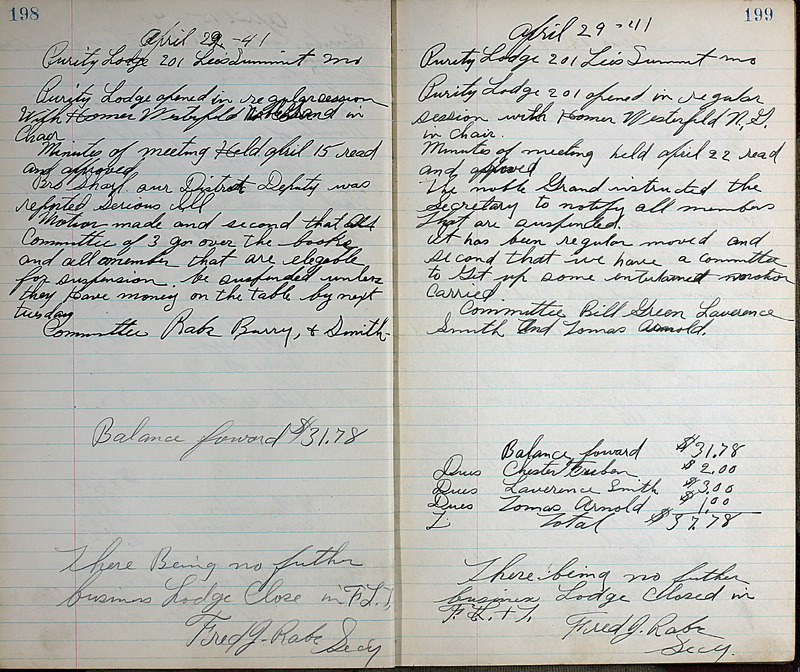 198
April 22 -41
Purity Lodge 201 Leis Summit mo
Purity Lodge opened in regular session
With Homer Westerfeld in
Chair
Minutes of meeting Held april 15 read
and approved
Bro Sharp our District Deputy was
reported serious Ill
Motion made and second that
Committee of 3 go over the books
and all member that are elegeble
for suspension be suspended unless
they have money on the table by next
tuesday
Committee Rabe Barry, & Smith.
Balance foward $31.78
There Being no futher
business Lodge Close in F.L.T.
Fred J. Rabe Secy
199
April 29 - 41
Purity Lodge 201 Leis Summit mo
Purity Lodge 201 opened in regular
session with Homer Westerfeld N.G.
in Chair.
Minutes of meeting held april 22 read
and approved
The noble Grand instructed the
secretary to notify all members
that are suspended.
it has been regular moved and
second that we have a committee
to get up some motion
Carried
Committee Bill Green Laverence
Smith and Tomas Arnold.
Balance foward $31.78
Dues Chester $2.00
Dues Laverence Smith $3.00
Dues Tomas Arnold $1.00
Total $37.78
There being no futher
business Lodge Closed in
F. L. + T.
Fred J. Rabe
Secy.